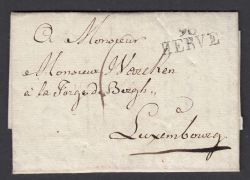 96
HERVE
à Monsieur
Monsieur
à la Forge de Bergh
à
Luxembourg